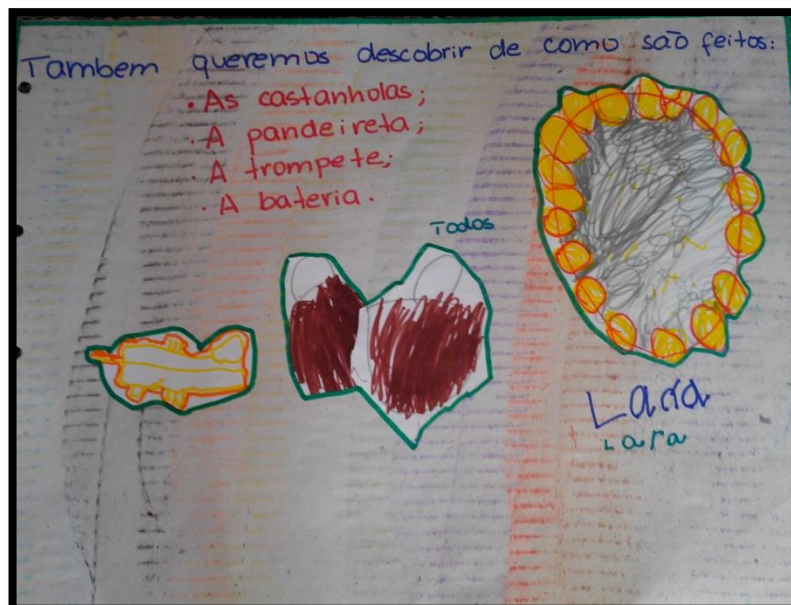 Tambem queremos descobrir de como são feitos:
. As castanholas;
. A pandeireta;
. A trompete;
. A bateria.
Todos
Lara